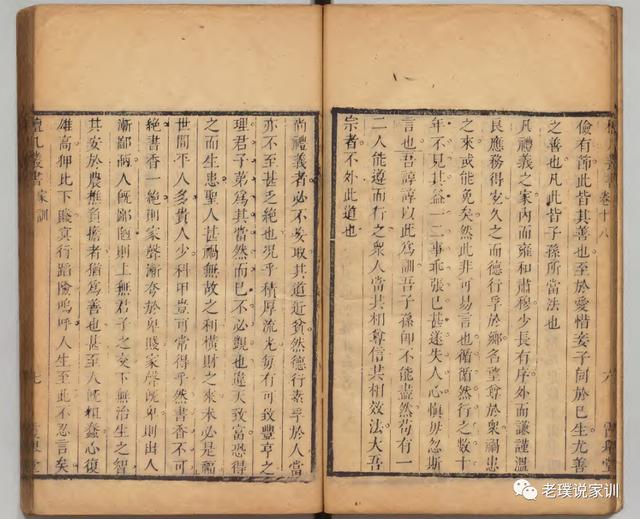 儉有節此皆其善也至於愛惜妾子同於巳生尤善
之善也凡此皆子孫所當法也
凡禮義之家內而雍和肅穆少長有序外而謙謹溫
良應務得宐久之而德行孚於鄉名望尊於衆禍患
之來或能免矣然此非可易言也循循然行之數十
年不見其益一二事乖張巳甚遂失人心愼毋忽斯
言也吾諄諄以此爲訓吾子孫卽不能盡然苟有一
二人能遵而行之衆人當共相尊信共相效法大吾
宗者不外此道也
尚禮義者必不妄取其道近貧然德行素孚於人當
亦不至甚乏絶也況乎積厚流光每有可致豐亨之
理君子弟爲其當然而巳不必覬也違天致富恐得
之而生患聖人甚禍無故之利橫財之來未必是福
世間平人多貴人少科甲豈可常得乎然書香不可
絶書香一絶則家聲漸夸於卑賤家聲旣卑則出人
漸鄙陋人旣鄙陋則上無君子之交下無治生之智
其安於農樵負擔者猶爲善也甚至人旣粗蠢心復
雄高仰比下賤冥行蹈險嗚呼人生至此不忍言矣
檀几叢書 家訓
七
卷十八
六
霞舉堂
老璞说家训